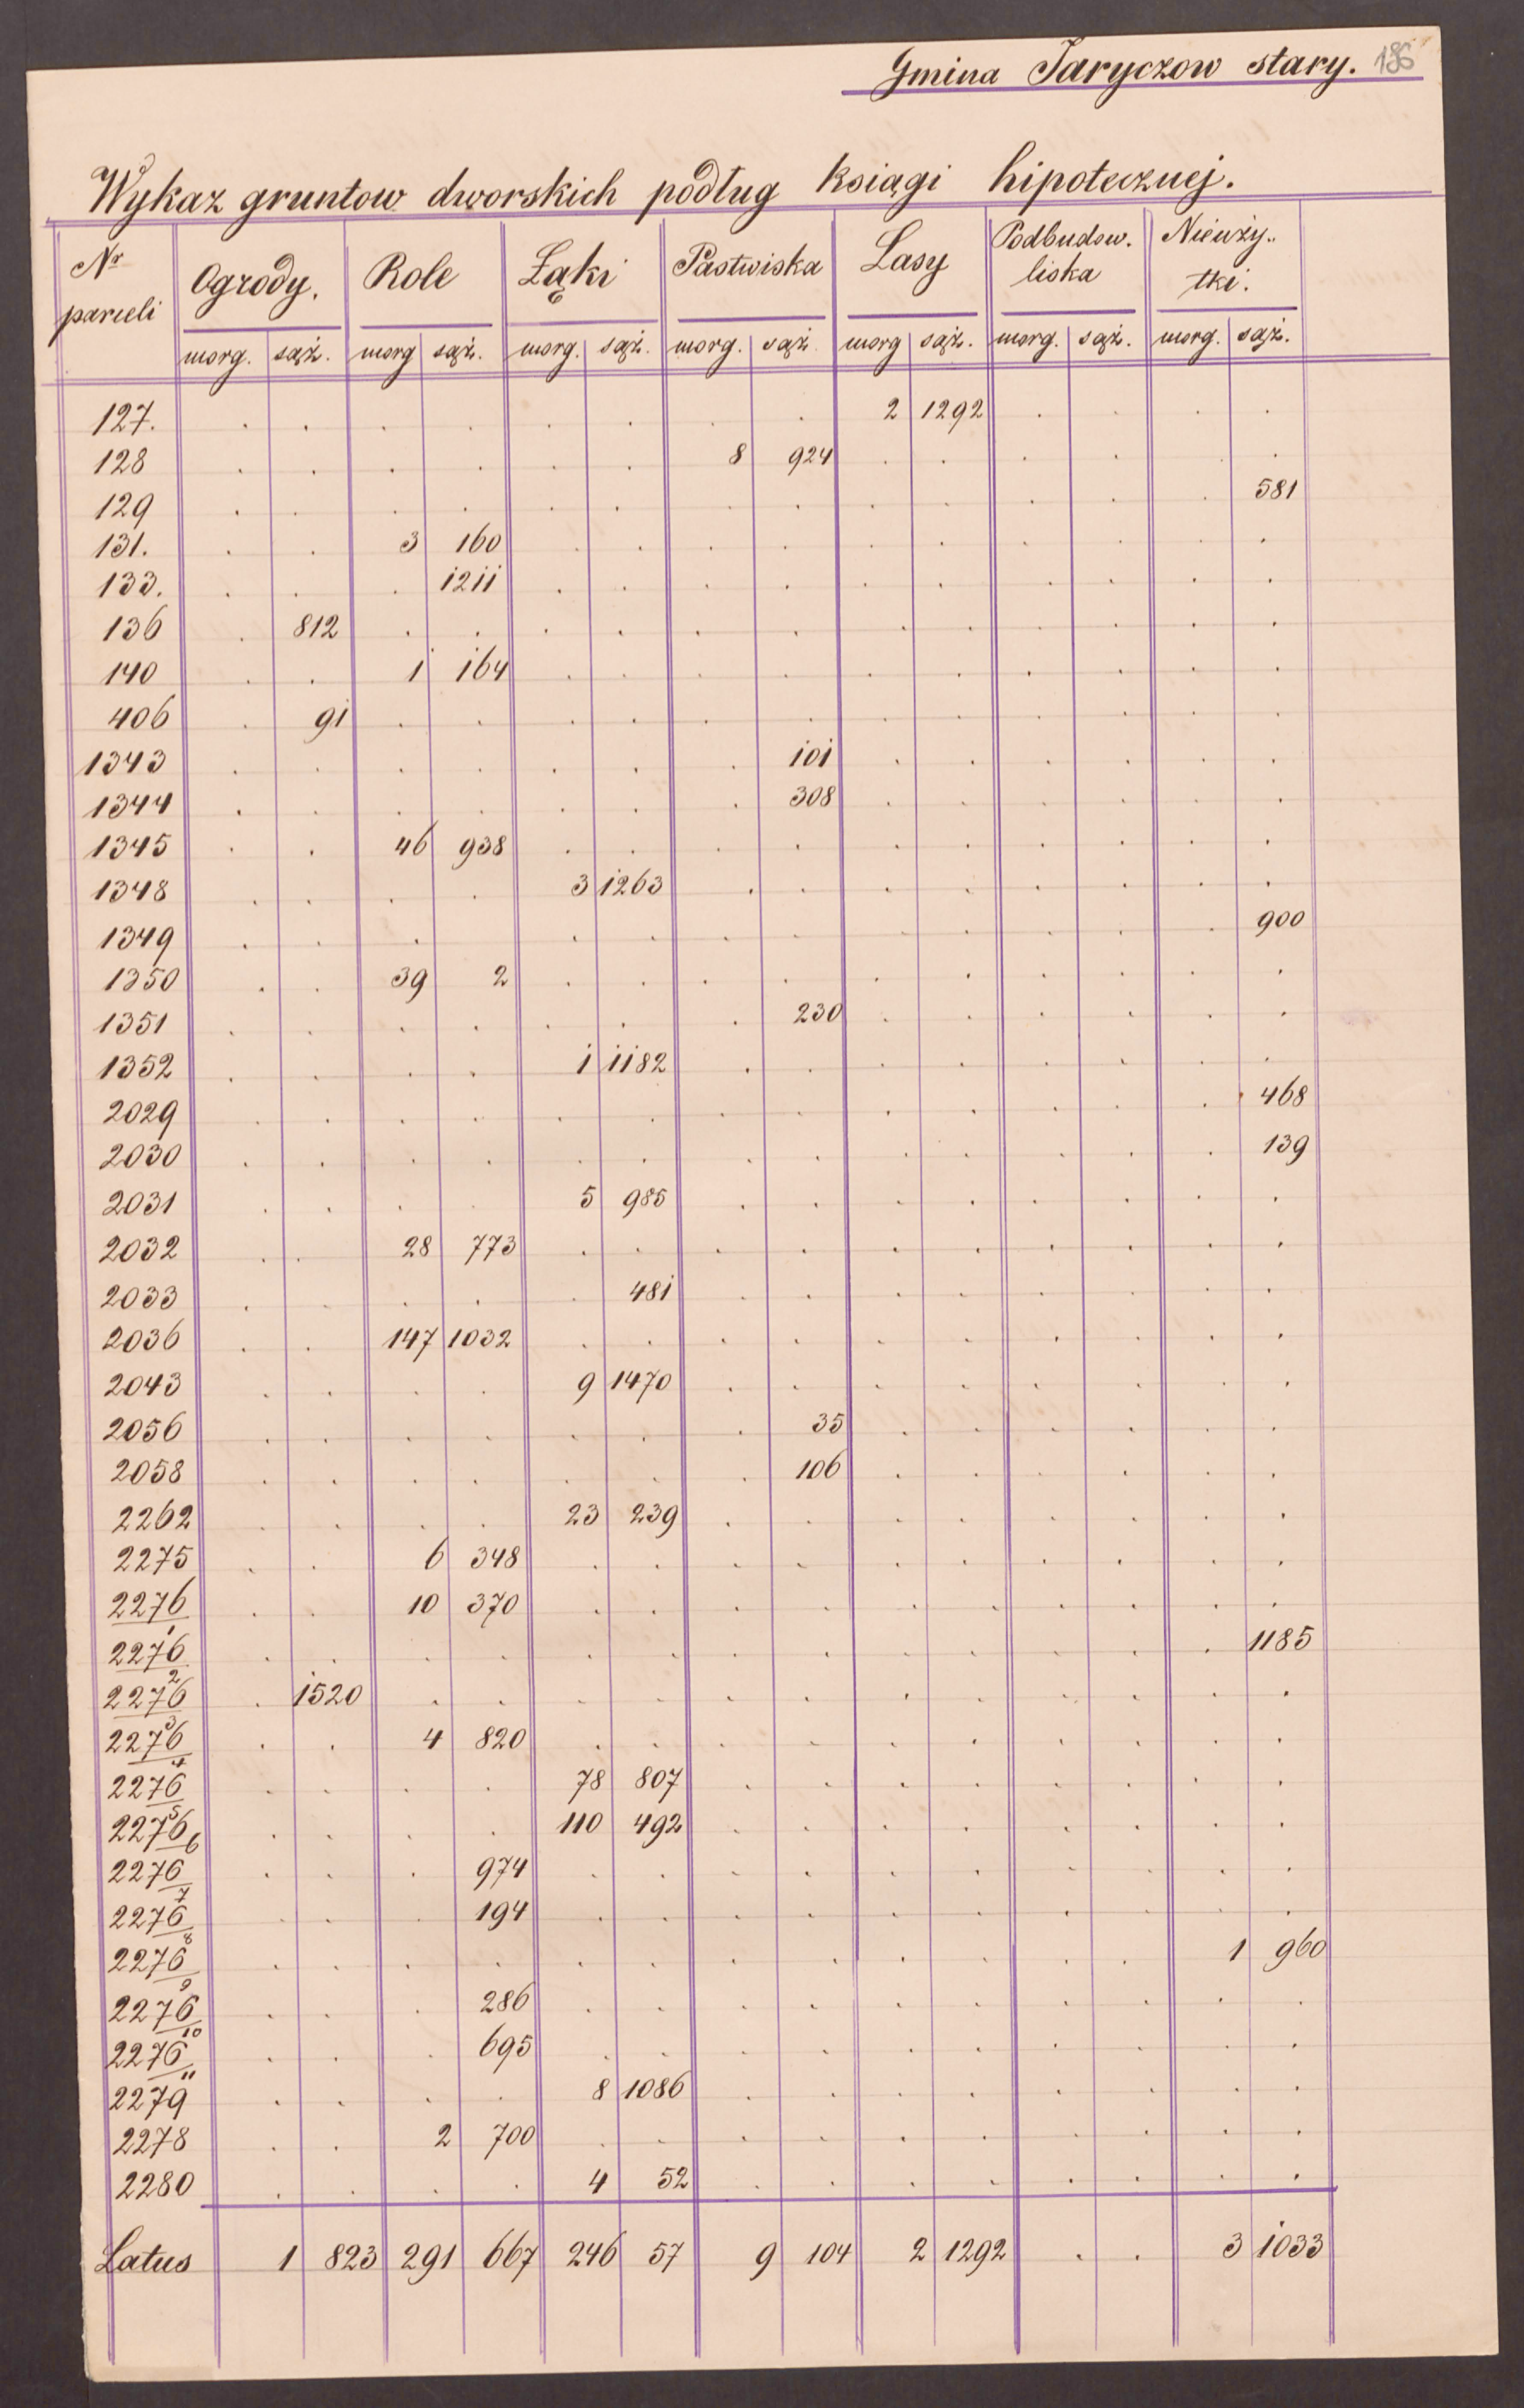 Gmina Jaryczow stary. 136
Wykaz gruntow dworskich podług ksiągi hipotecznej.
Nr parceli Ogrody. Role Łąki Pastwiska Lasy Podbudow. liska Nieuży.. tki.
morg. sąż. morg sąż. morg. sąż. morg. sąż morg sąż. morg. sąż. morg. sąż.
127. . . . . . . . . 2 1292 . . . .
128 . . . . . . 8 924 . . . . . .
129 . . . . . . . . . . . . . 581
131. . . 3 160 . . . . . . . . . .
133. . . . 1211 . . . . . . . . . .
136 . 812 . . . . . . . . . . . .
140 . . 1 164 . . . . . . . . . .
406 . 91 . . . . . . . . . . . .
1343 . . . . . . . 101 . . . . . .
1344 . . . . . . . 308 . . . . . .
1345 . . 46 938 . . . . . . . . . .
1348 . . . . 3 1263 . . . . . . . .
1349 . . . . . . . . . . . . . 900
1350 . . 39 2 . . . . . . . . . .
1351 . . . . . . . 230 . . . . . .
1352 . . . . 1 1182 . . . . . . . .
2029 . . . . . . . . . . . . . 468
2030 . . . . . . . . . . . . . 139
2031 . . . . 5 985 . . . . . . . .
2032 . . 28 773 . . . . . . . . . .
2033 . . . . . 481 . . . . . . . .
2036 . . 147 1032 . . . . . . . . . .
2043 . . . . 9 1470 . . . . . . . .
2056 . . . . . . . 35 . . . . . .
2058 . . . . . . . 106 . . . . . .
2262 . . . . 23 239 . . . . . . . .
2275 . . 6 348 . . . . . . . . . .
2276/1 . . 10 370 . . . . . . . . . .
2276/2 . . . . . . . . . . . . . 1185
2276/3 . 1520 . . . . . . . . . . . .
2276/4 . . 4 820 . . . . . . . . . .
2276/5 . . . . 78 807 . . . . . . . .
2276/6 . . . . 110 492 . . . . . . . .
2276/7 . . . 974 . . . . . . . . . .
2276/8 . . . 194 . . . . . . . . . .
2276/9 . . . . . . . . . . . . 1 960
2276/10 . . . 286 . . . . . . . . . .
2276/11 . . . 695 . . . . . . . . . .
2279 . . . . 8 1086 . . . . . . . .
2278 . . 2 700 . . . . . . . . . .
2280 . . . . 4 52 . . . . . . . .
Latus 1 823 291 667 246 57 9 104 2 1292 . . 3 1033